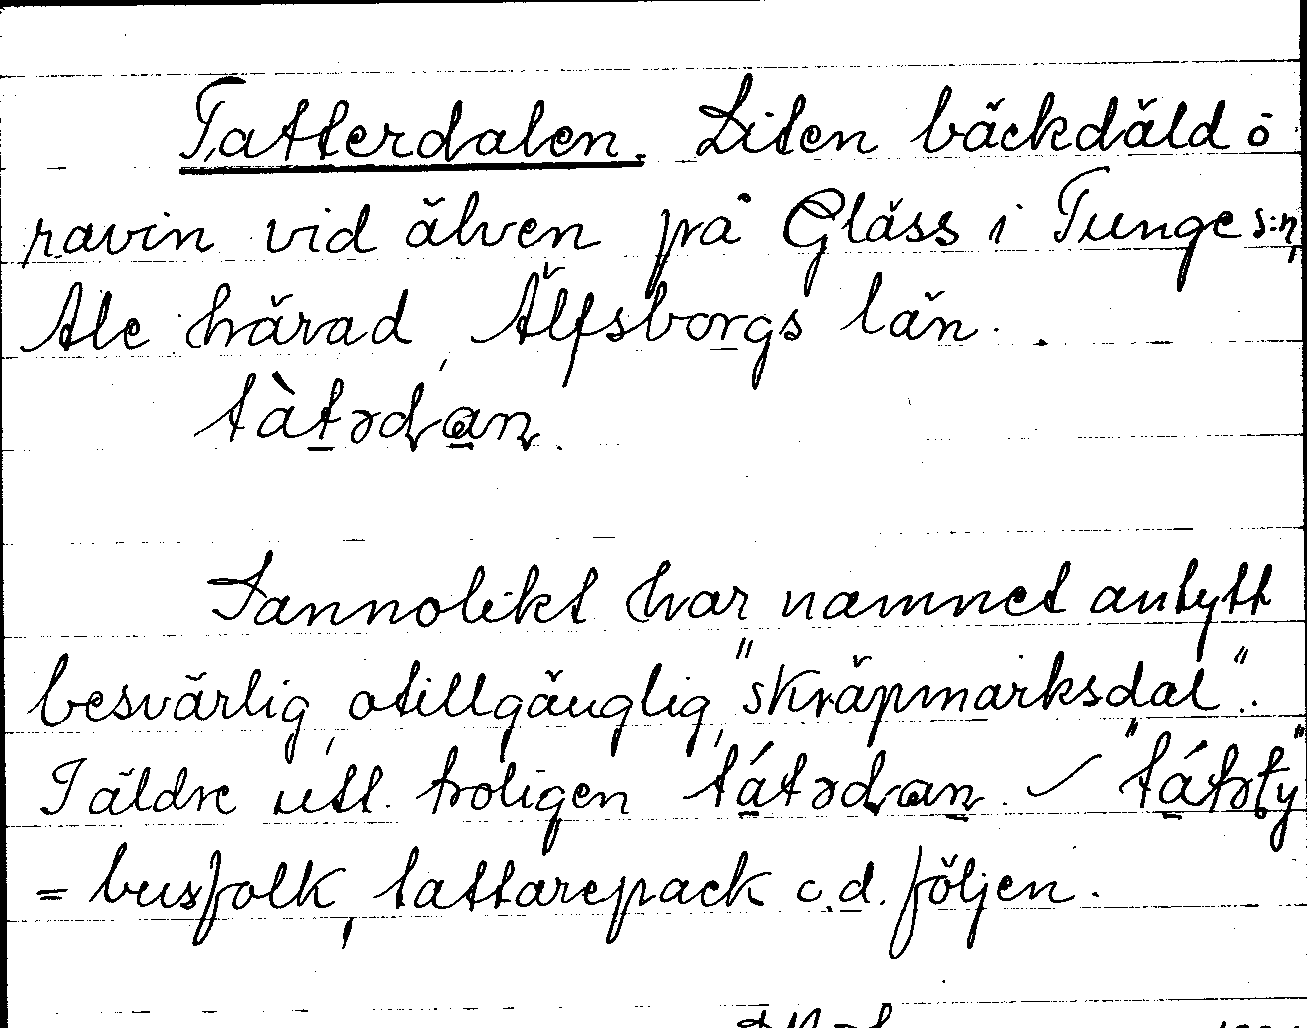 Tatterdalen. Liten bäckdäld o
ravin vid älven på Gläss i Tunge s:n,
Ale härad, Älfsborgs län.
tàtədan.
Sannolikt har namnet antytt
besvärlig, otillgänglig, "skräpmarksdal".
I äldre utt. troligen tátədan. ✓ "tátəty"
= busfolk, tattarepack o.d. följen.